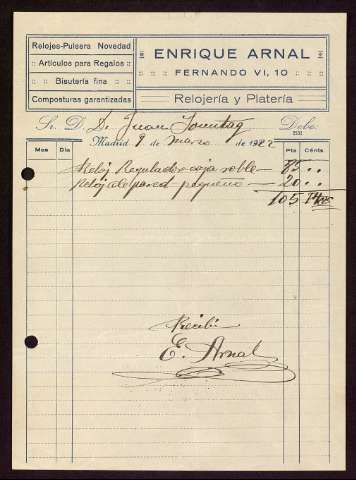 Relojes-Pulsera Novedad
Artículos para Regalos
Bisutería fina
Composturas garantizadas
ENRIQUE ARNAL
FERNANDO VI, 10
Relojería y Platería
Sr. D. D. Juan Debe:
Madrid 9 de Marzo de 192
Mes Día Pts Cénts
Reloj Regulador caja roble 85
Reloj de pared pequeño 20
105
Recibí
E. Arnal